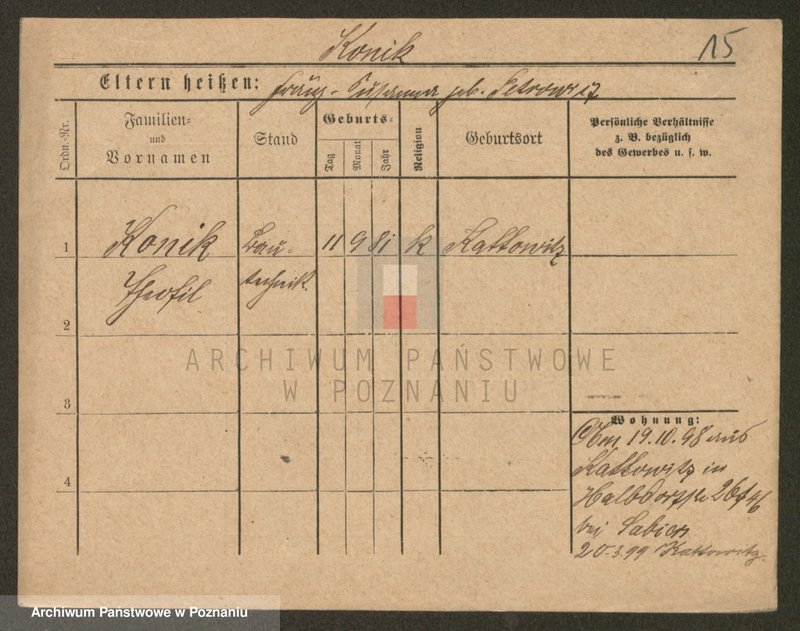 Konik
15
Eltern heißen: Franz - Susanna geb. Petrowitz
Ordn.-Nr.
Familien-
und
Vornamen
Stand
Geburts-
Tag
Monat
Jahr
Religion
Geburtsort
Persönliche Verhältnisse
z. B. bezüglich
des Gewerbes u. s. w.
1 Konik Bau- 11 9 81 k Kattowitz
Theofil technik.
2
ARCHIWUM PAŃSTWOWE
W POZNANIU
3
Wohnung:
19.10.98 aus
Kattowitz in
Halbdorfstr 26
bei
4
20.3.99 Kattowitz.
Archiwum Państwowe w Poznaniu